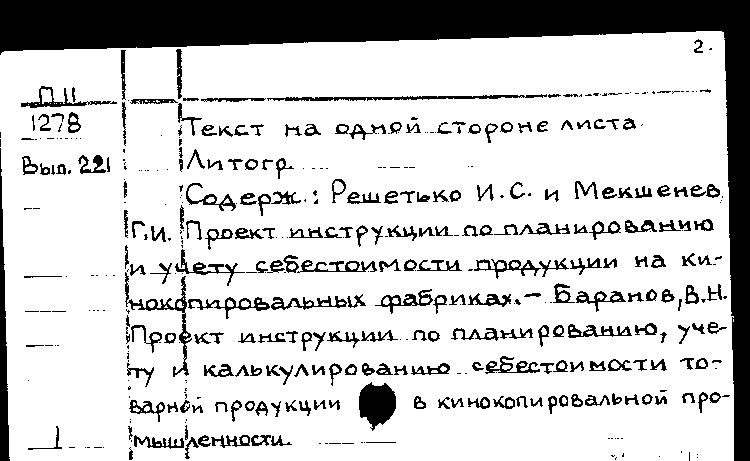 2.
П II
1278
Вып. 221
Текст на одной стороне листа.
Литогр.
Содерж.: Решетько И.С. и Мекшенев
Г.И. Проект инструкции по планированию
и учету себестоимости продукции на ки-
нокопировальных фабриках. - Баранов, В.Н.
Проект инструкции по планированию, уче-
ту и калькулированию себестоимости то-
варной продукции в кинокопировальной про-
мышленности.
1